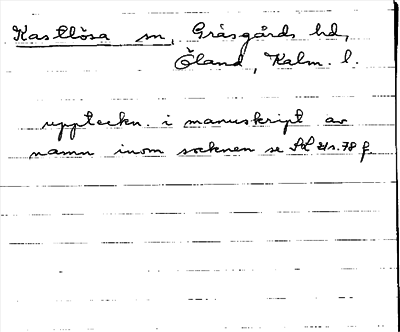 Kastlösa sn, Gräsgårds hd,
Öland, Kalm. l.
uppteckn. i manuskript av
namn inom socknen se Sd 21 s. 78 f.